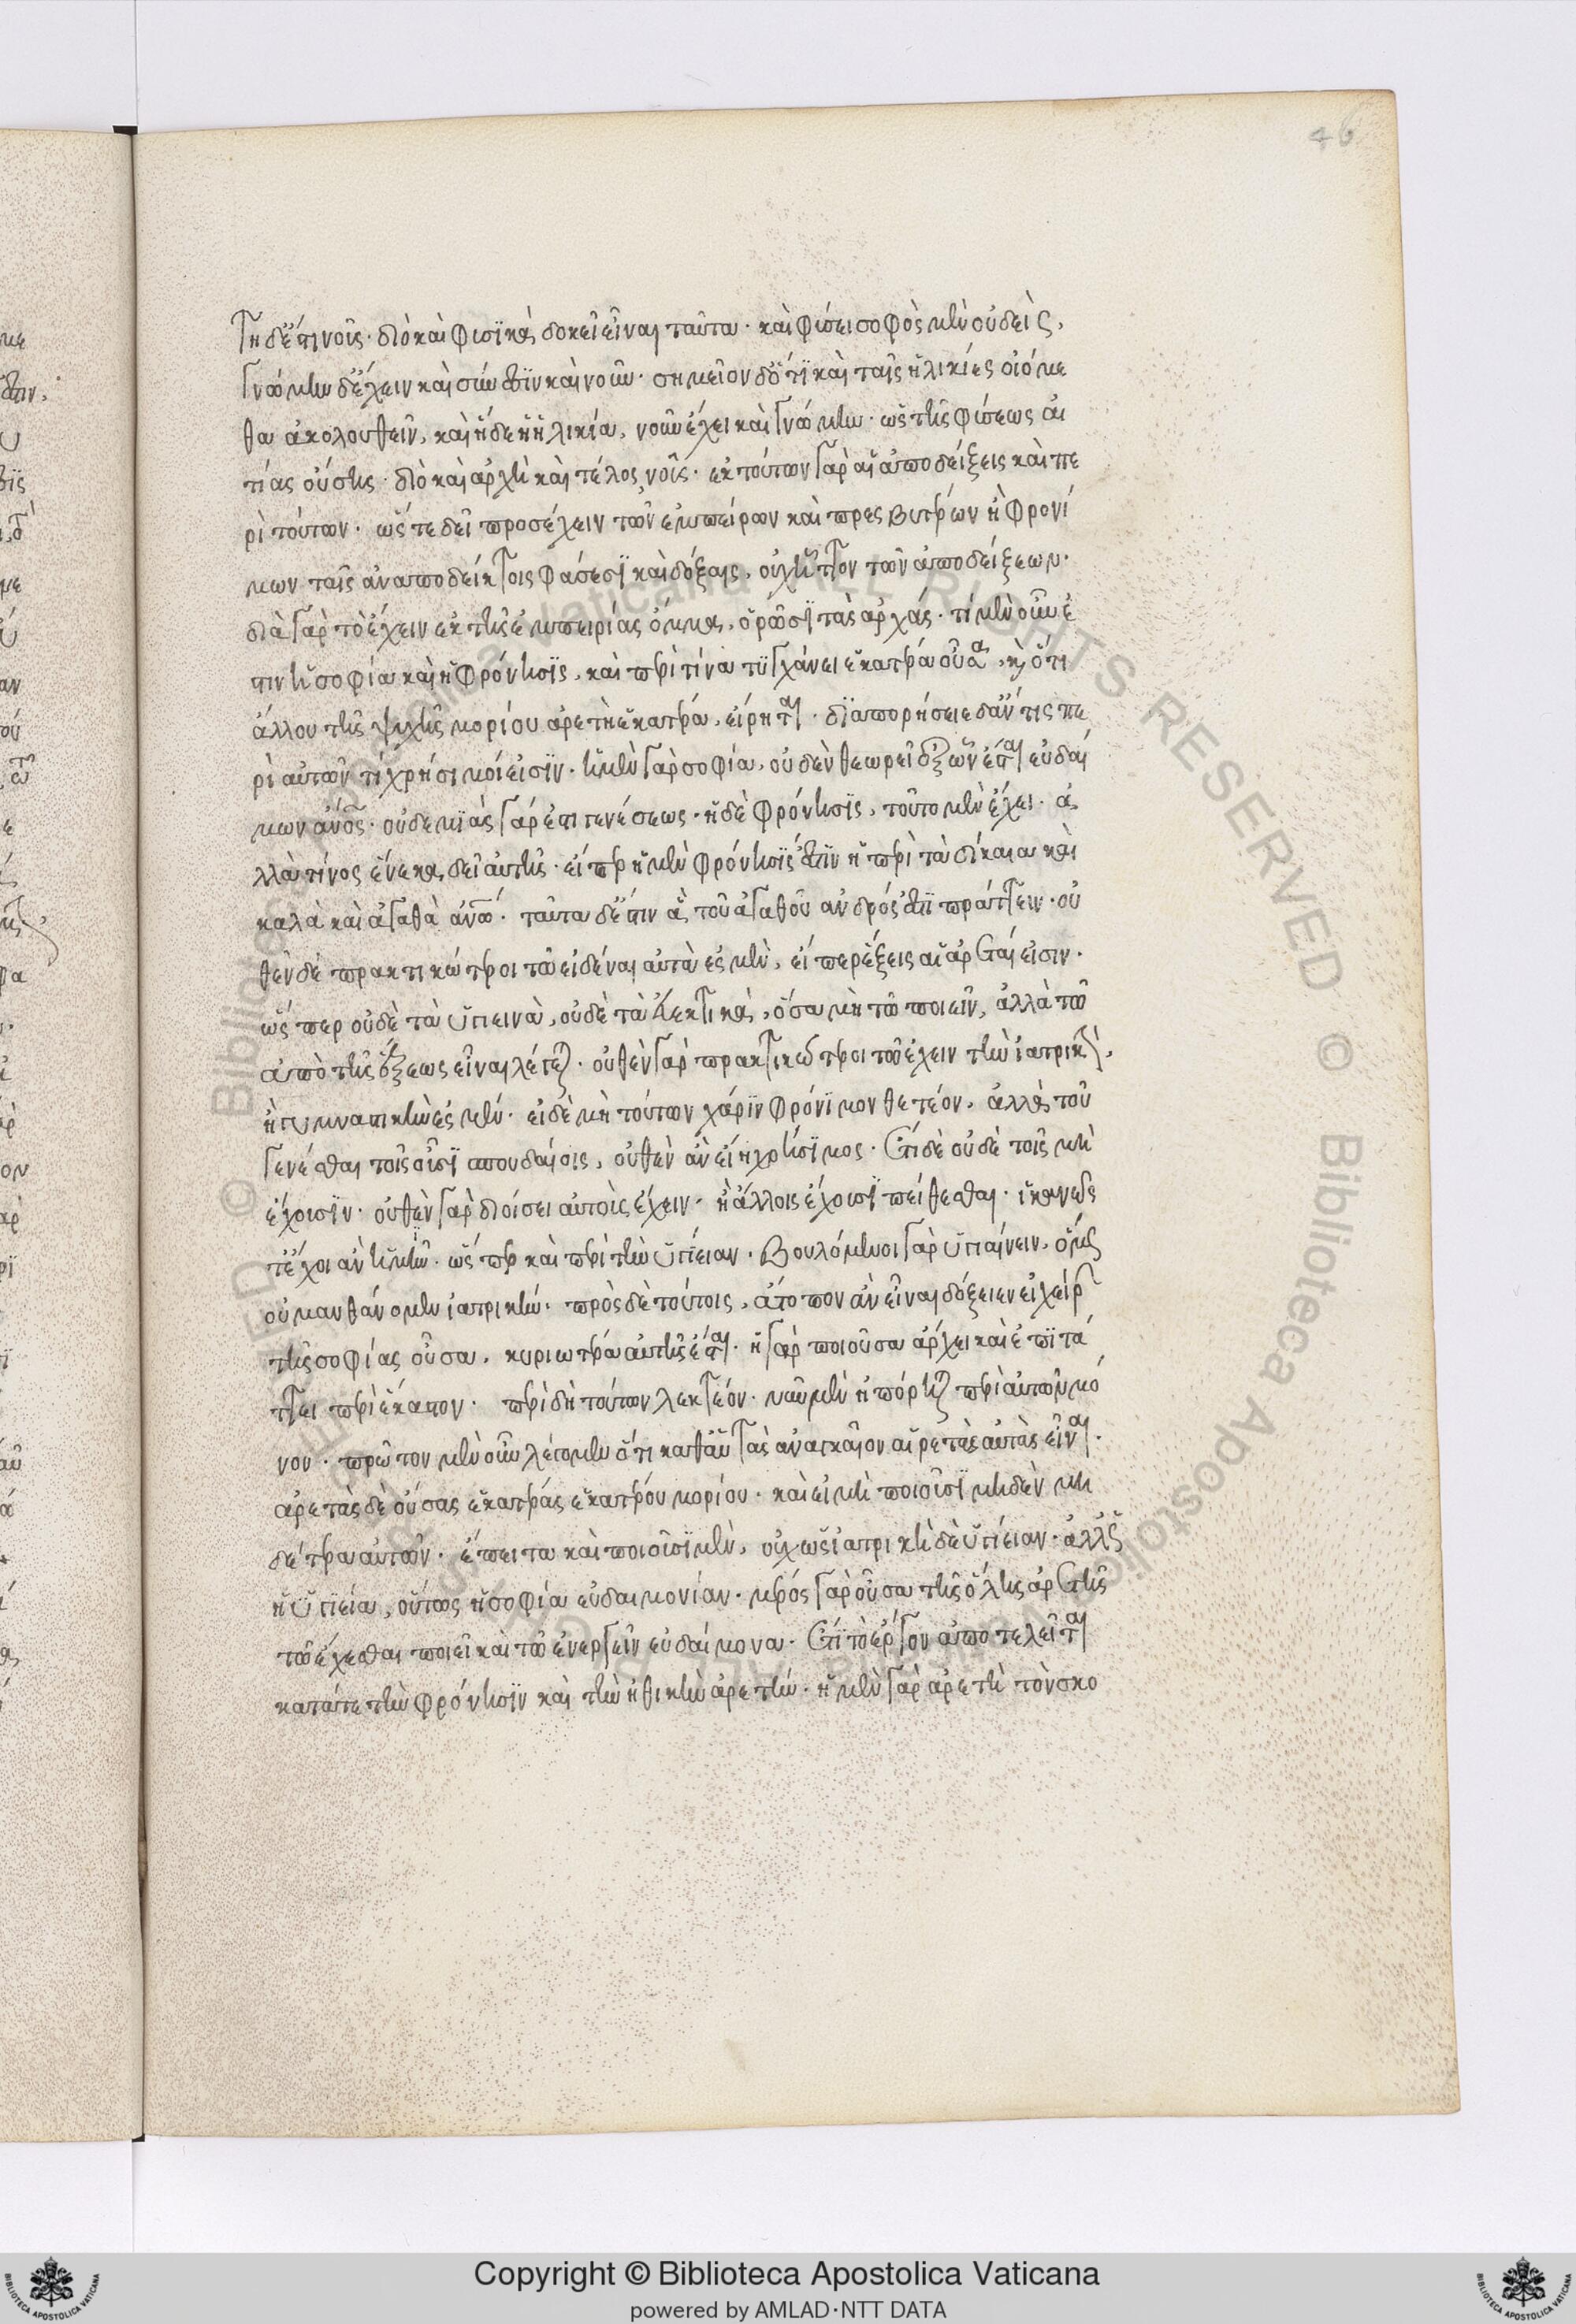 46
τη δ' ἐστὶ νοῦς· διὸ καὶ φυσικὰ δοκεῖ εἶναι ταῦτα· καὶ φύσει σοφὸς μὲν οὐδεὶς,
γνώμην δ' ἔχειν καὶ σύνεσιν καὶ νοῦν· σημεῖον δ' ὅτι καὶ ταῖς ἡλικίες οἰόμε
θα ἀκολουθεῖν, καὶ ἥδε ἡ ἡλικία, νοῦν ἔχει καὶ γνώμην· ὡς τῆς φύσεως αἰ
τίας οὔσης· διὸ καὶ ἀρχὴ καὶ τέλος νοῦς· ἐκ τούτων γὰρ αἱ ἀποδείξεις καὶ πε
ρὶ τούτων· ὥστε δεῖ προσέχειν τῶν ἐμπείρων καὶ πρεσβυτέρων ἢ φρονί
μων ταῖς ἀναποδείκτοις φάσεσι καὶ δόξαις, οὐχ ἧττον τῶν ἀποδείξεων·
διὰ γὰρ τὸ ἔχειν ἐκ τῆς ἐμπειρίας ὄμμα, ὁρῶσι τὰς ἀρχάς· τί μὲν οὖν ἐ
στιν ἡ σοφία καὶ ἡ φρόνησις, καὶ περὶ τίνα τυγχάνει ἑκατέρα οὖσα, κ(αὶ) ὅτι
ἄλλου τῆς ψυχῆς μορίου ἀρετὴ ἑκατέρα, εἴρηται· διαπορήσειε δ' ἄν τις πε
ρὶ αὐτῶν τί χρήσιμοί εἰσιν· ἡ μὲν γὰρ σοφία, οὐδὲν θεωρεῖ ἐξ ὧν ἔσται εὐδαί
μων ἄνος· οὐδεμιᾶς γάρ ἐστι γενέσεως· ἡ δὲ φρόνησις, τοῦτο μὲν ἔχει· ἀ
λλὰ τίνος ἕνεκα δεῖ αὐτῆς· εἴπερ ἡ μὲν φρόνησίς ἐστιν ἡ περὶ τὰ δίκαια καὶ
καλὰ καὶ ἀγαθὰ ἀνω· ταῦτα δ' ἐστὶν ἃ τοῦ ἀγαθοῦ ἀνδρός ἐστι πράττειν· οὐ
θὲν δὲ πρακτικώτεροι τῶ εἰδέναι αὐτὰ ἐσμὲν, εἴπερ ἕξεις αἱ ἀρεταί εἰσιν·
ὥσπερ οὐδὲ τὰ ὑγιεινὰ, οὐδὲ τὰ εὐεκτικὰ, ὅσα μὴ τῶ ποιεῖν, ἀλλὰ τῶ
ἀπὸ τῆς ἕξεως εἶναι λέγεται· οὐθὲν γὰρ πρακτικώτεροι τῶ ἔχειν τὴν ἰατρικὴν,
ἢ γυμναστικὴν ἐσμέν· εἰ δὲ μὴ τούτων χάριν φρόνιμον θετέον, ἀλλὰ τοῦ
γενέσθαι τοῖς οὖσι σπουδαίοις, οὐθὲν ἂν εἴη χρήσιμος· ἔτι δὲ οὐδὲ τοῖς μὴ
ἔχουσιν· οὐθὲν γὰρ διοίσει αὐτοὺς ἔχειν, ἢ ἄλλοις ἔχουσι πείθεσθαι· ἱκανῶς
τ' ἔχοι ἂν ἡμῖν· ὥσπερ καὶ περὶ τὴν ὑγίειαν· βουλόμενοι γὰρ ὑγιαίνειν, ὅμως
οὐ μανθάνομεν ἰατρικήν· πρὸς δὲ τούτοις, ἄτοπον ἂν εἶναι δόξειεν εἰ χείρων
τῆς σοφίας οὖσα, κυριωτέρα αὐτῆς ἔσται· ἡ γὰρ ποιοῦσα ἄρχει καὶ ἐπιτά
ττει περὶ ἕκαστον· περὶ δὴ τούτων λεκτέον· νῦν μὲν ἠπόρηται περὶ αὐτῶν μό
νον· πρῶτον μὲν οὖν λέγομεν ὅτι καθ' αὑτὰς ἀναγκαῖον αἱρετὰς αὐτὰς εἶναι·
ἀρετὰς δὲ οὔσας ἑκατέρας ἑκατέρου μορίου· καὶ εἰ μὴ ποιοῦσι μηδὲν μη
δετέρα αὐτῶν· ἔπειτα καὶ ποιοῦσι μὲν, οὐχ ὡς ἰατρικὴ δὲ ὑγίειαν· ἀλλ' ὡς
ἡ ὑγίεια, οὕτως ἡ σοφία εὐδαιμονίαν· μέρος γὰρ οὖσα τῆς ὅλης ἀρετῆς
τῶ ἔχεσθαι ποιεῖ καὶ τῶ ἐνεργεῖν εὐδαίμονα· ἔτι τὸ ἔργον ἀποτελεῖται
κατά τε τὴν φρόνησιν καὶ τὴν ἠθικὴν ἀρετήν· ἡ μὲν γὰρ ἀρετὴ τὸν σκο
Copyright © Biblioteca Apostolica Vaticana
powered by AMLAD·NTT DATA